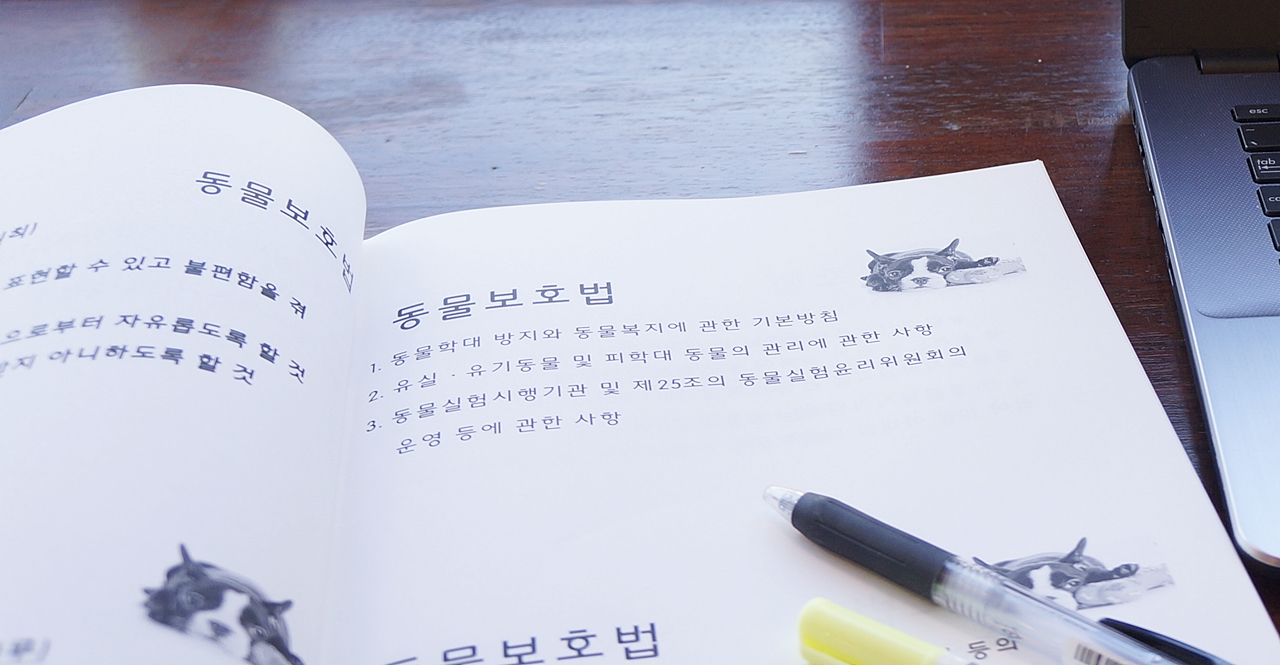 동물보호법
표현할 수 있고 불편함을 겪
으로부터 자유롭도록 할 것
하지 아니하도록 할 것
동물보호법
1. 동물학대 방지와 동물복지에 관한 기본방침
2. 유실 · 유기동물 및 피학대 동물의 관리에 관한 사항
3. 동물실험시행기관 및 제25조의 동물실험윤리위원회의
운영 등에 관한 사항
동물보호법
등의
esc
tab